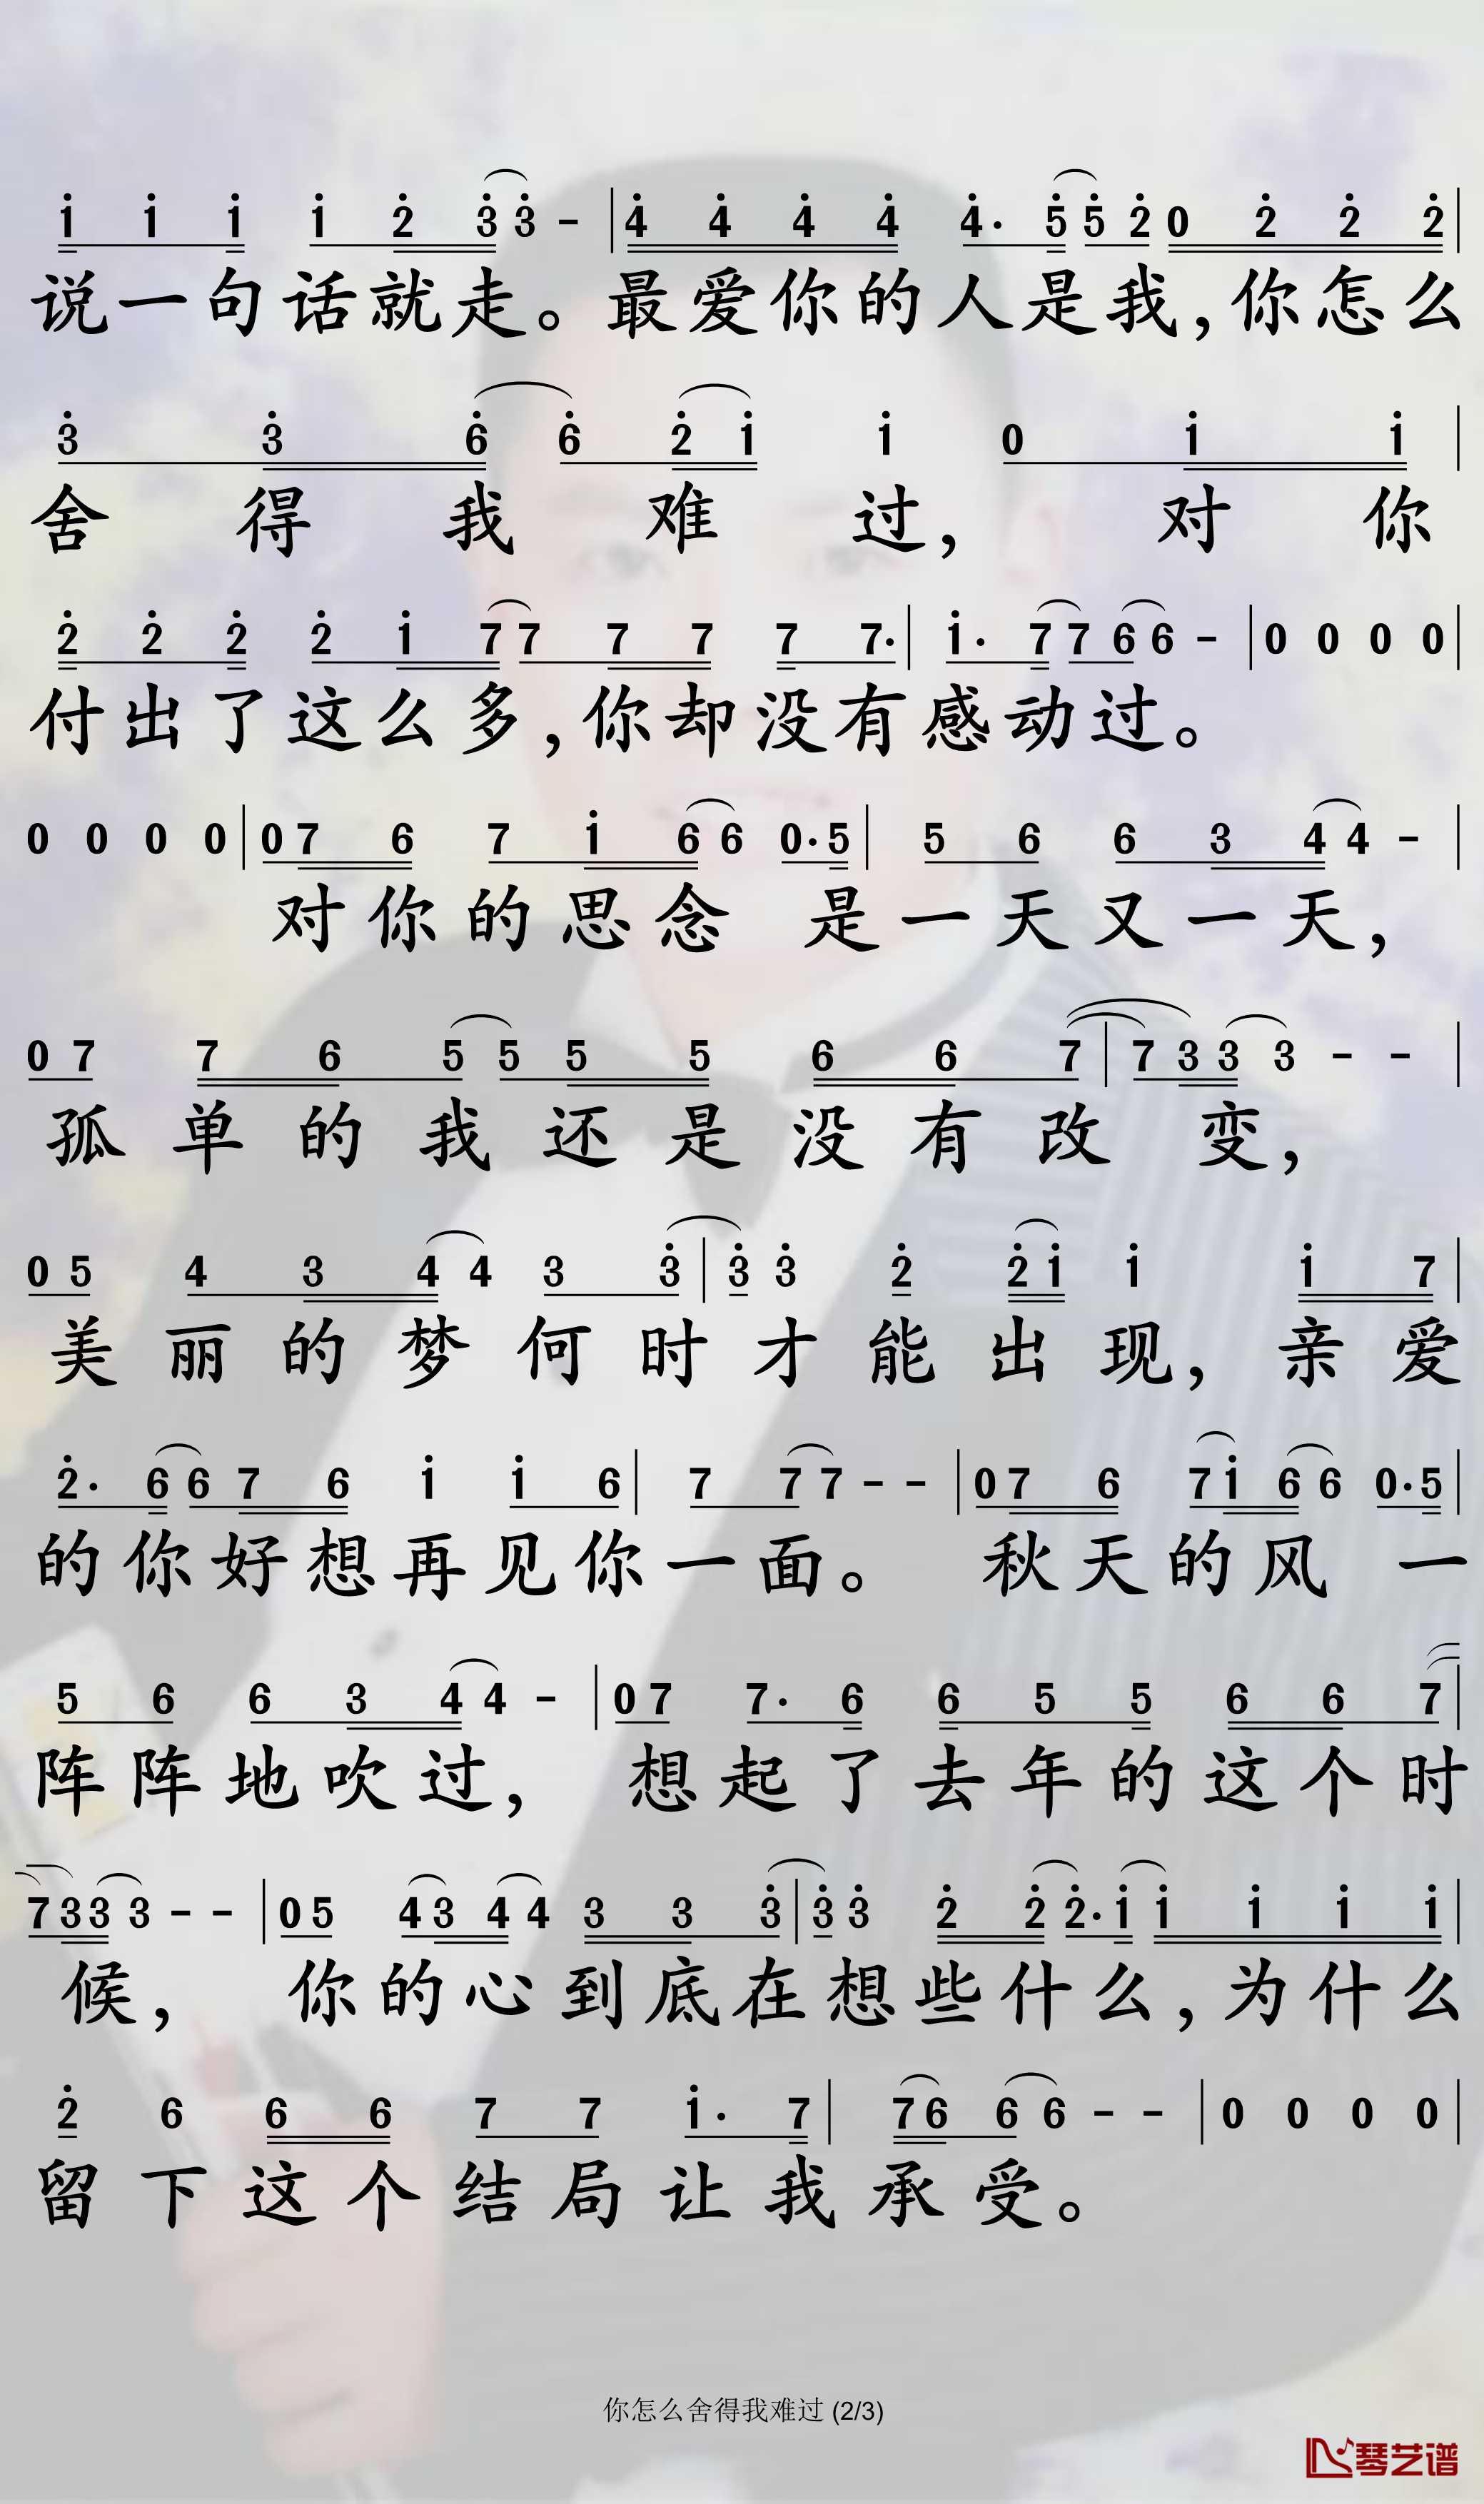 1 1 1 1 2 3 3 - | 4 4 4 4 4· 5 5 2 0 2 2 2 |
说一句话就走。最爱你的人是我,你怎么
3 3 6 6 2 1 1 0 1 1 |
舍得我难过,对你
2 2 2 2 1 7 7 7 7 7 7· | 1· 7 7 6 6 - | 0 0 0 0 |
付出了这么多,你却没有感动过。
0 0 0 0 | 0 7 6 7 1 6 6 0· 5 | 5 6 6 3 4 4 - |
对你的思念 是一天又一天,
0 7 7 6 5 5 5 5 6 6 7 | 7 3 3 3 - - |
孤单的我还是没有改变,
0 5 4 3 4 4 3 3 | 3 3 2 2 1 1 1 7 |
美丽的梦何时才能出现,亲爱
2· 6 6 7 6 1 1 6 | 7 7 7 - - | 0 7 6 7 1 6 6 0· 5 |
的你好想再见你一面。 秋天的风 一
5 6 6 3 4 4 - | 0 7 7· 6 6 5 5 6 6 7 |
阵阵地吹过, 想起了去年的这个时
7 3 3 3 - - | 0 5 4 3 4 4 3 3 3 | 3 3 2 2 2· 1 1 1 1 1 |
候, 你的心到底在想些什么,为什么
2 6 6 6 7 7 1· 7 | 7 6 6 6 - - | 0 0 0 0 |
留下这个结局让我承受。
你怎么舍得我难过 (2/3)
琴艺谱